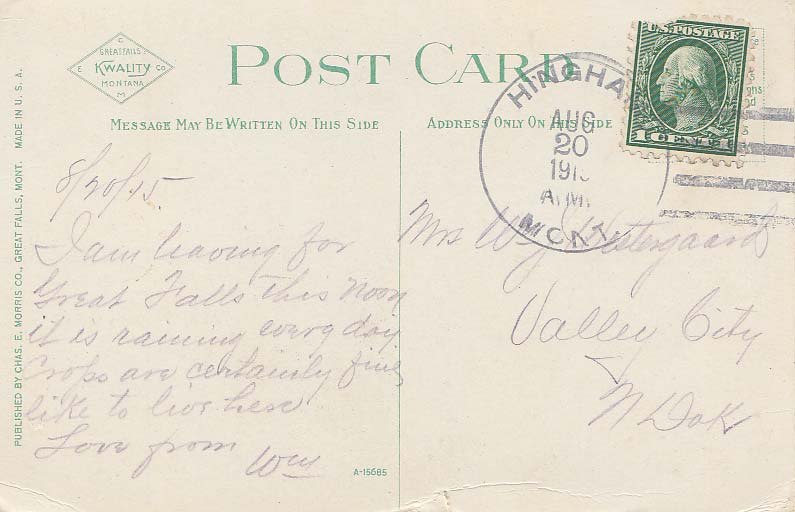 C
GREAT FALLS
E KWALITY CO
MONTANA
M
POST CARD
MESSAGE MAY BE WRITTEN ON THIS SIDE
ADDRESS ONLY ON THIS SIDE
U.S. POSTAGE
1 CENT 1
HINGHAM
AUG
20
191
A.M.
MONT.
8/20/15.
I am leaving for
Great Falls this noon
it is raining every day
Crops are certainly fine
like to live here
Love from
Wm
Mrs Wm Westergaard
Valley City
N Dak
A-15685
PUBLISHED BY CHAS. E. MORRIS CO., GREAT FALLS, MONT. MADE IN U.S.A.